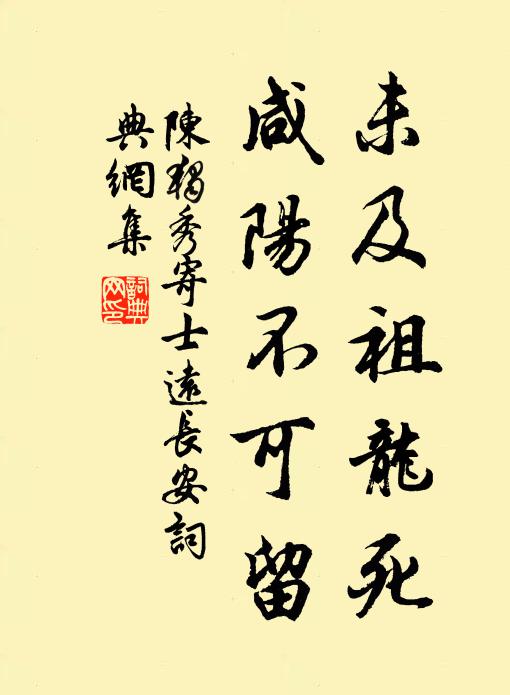 未及祖龍死
咸陽不可留
陳獨秀寄士遠長安詞
典網集
詞典
网印